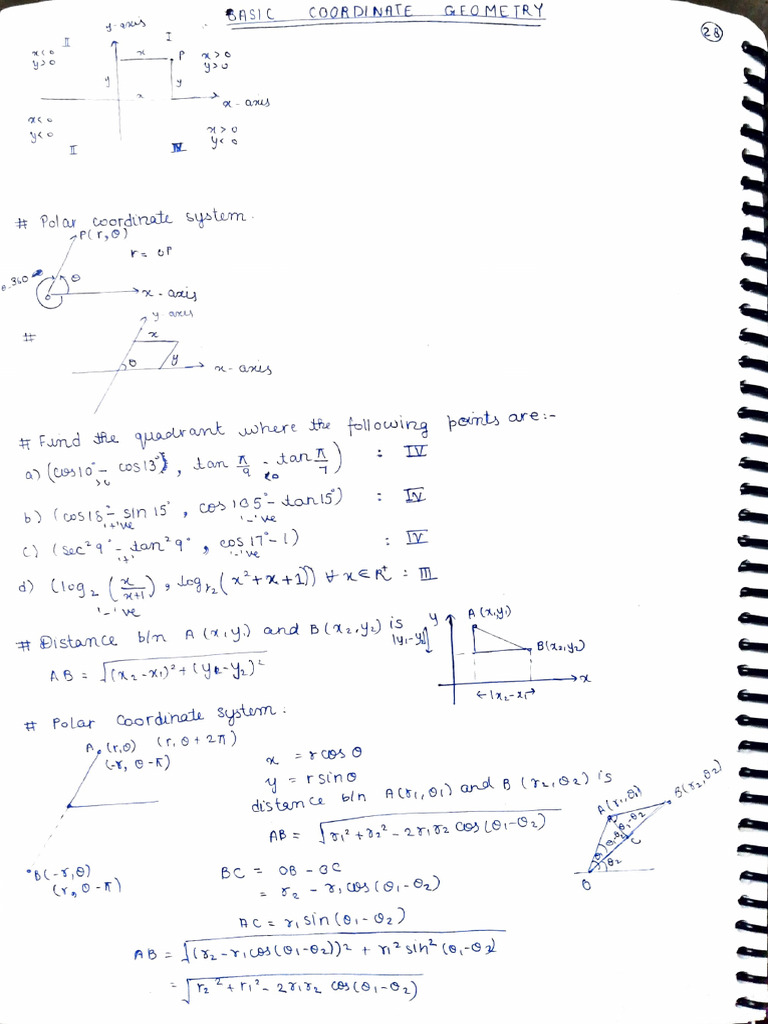 BASIC COORDINATE GEOMETRY
28
y-axis
II
I
x<0
y>0
x
P
x>0
y>0
y
y
x
x-axis
x<0
y<0
x>0
y<0
II
IV
# Polar coordinate system.
P(r,θ)
r = OP
θ
360
O
x-axis
y-axis
#
x
θ
y
x-axis
# Find the quadrant where the following points are:-
a) (cos10° - cos13°, tan π/9 - tan π/7) : IV
>0
<0
b) (cos15° - sin 15°, cos 105° - tan15°) : IV
'+'ve
'-'ve
c) (sec²9° - tan²9°, cos17° - 1) : IV
'+'
'-'ve
d) (log₂ (x/(x+1)), log₁/₂ (x²+x+1)) ∀ x∈R⁺ : III
'-'ve
# Distance b/n A(x,y₁) and B(x₂,y₂) is
AB = √((x₂-x₁)² + (y₂-y₂)²)
y
A(x,y₁)
|y₁-y₂|
B(x₂,y₂)
x
|x₂-x₁|
# Polar Coordinate system:
A(r,θ) (r, θ+2π)
(-r, θ-π)
x = r cosθ
y = r sinθ
distance b/n A(r₁,θ₁) and B(r₂,θ₂) is
AB = √(r₁² + r₂² - 2r₁r₂ cos(θ₁-θ₂))
A(r₁,θ₁)
B(r₂,θ₂)
θ₁-θ₂
C
θ₂
O
B(-r,θ)
(r, θ-π)
BC = OB - OC
= r₂ - r₁cos(θ₁-θ₂)
AC = r₁ sin(θ₁-θ₂)
AB = √((r₂-r₁cos(θ₁-θ₂))² + r₁² sin²(θ₁-θ₂))
= √(r₂² + r₁² - 2r₁r₂ cos(θ₁-θ₂))